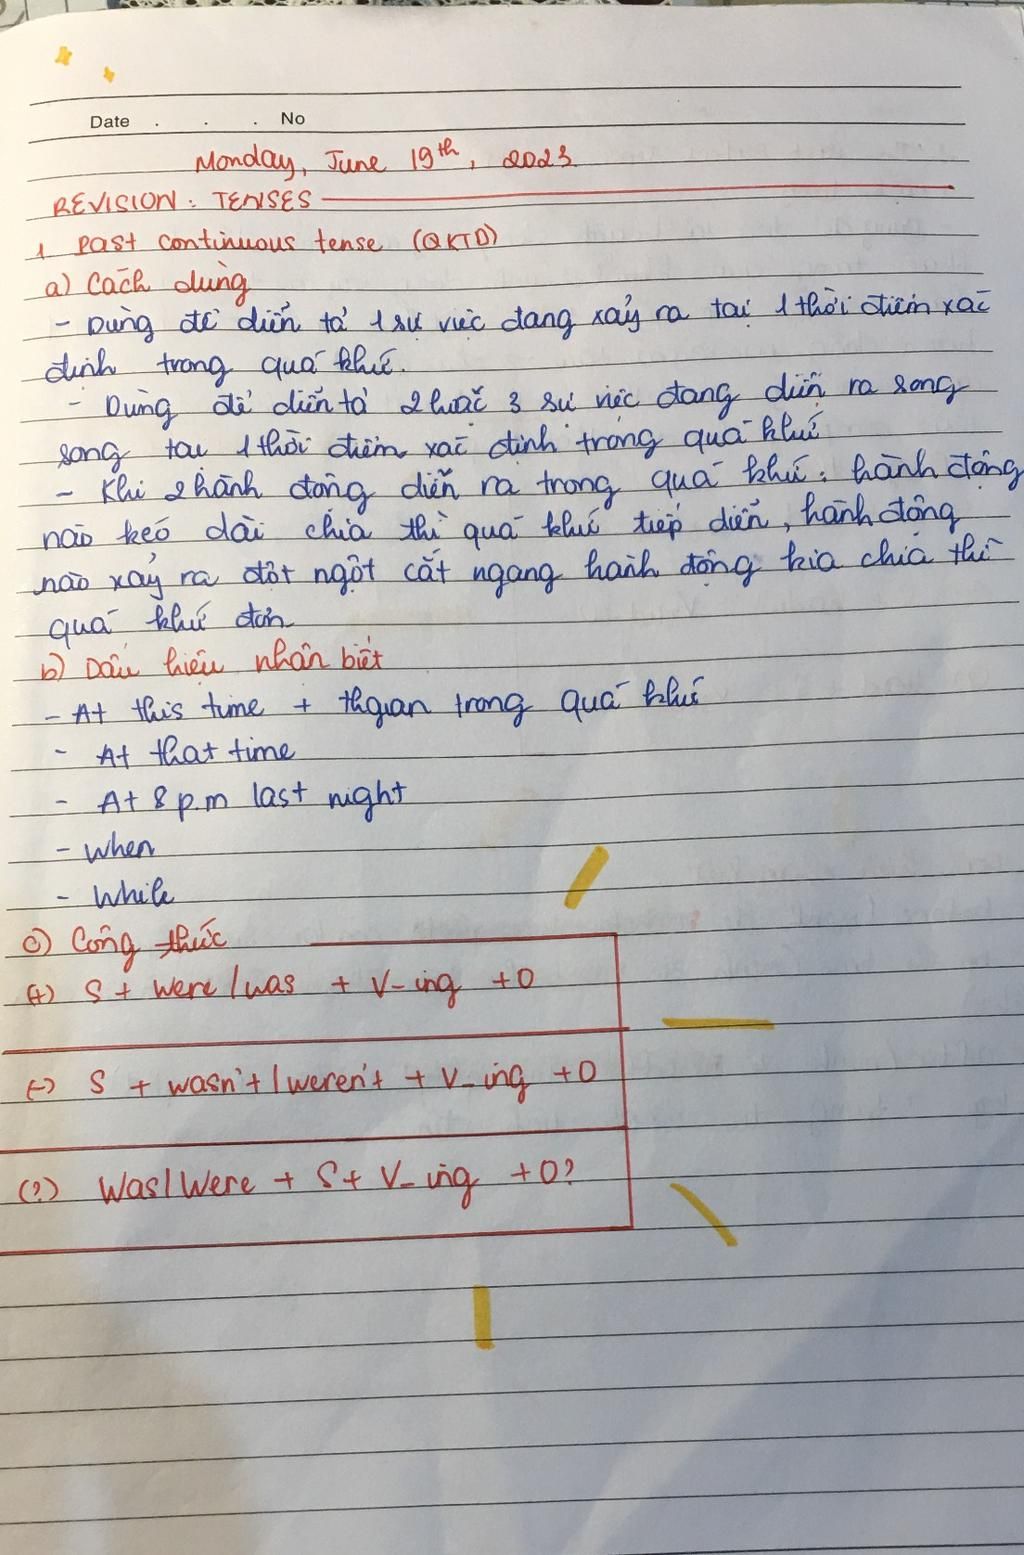 Date . . . No
Monday, June 19th, 2023.
REVISION: TENSES
1. Past continuous tense (QKTD)
a) Cách dùng
- Dùng để diễn tả 1 sự việc đang xảy ra tại 1 thời điểm xác
định trong quá khứ.
- Dùng để diễn tả 2 hoặc 3 sự việc đang diễn ra song
song tại 1 thời điểm xác định trong quá khứ
- Khi 2 hành động diễn ra trong quá khứ: hành động
nào kéo dài chia thì quá khứ tiếp diễn, hành động
nào xảy ra đột ngột cắt ngang hành động kia chia thì
quá khứ đơn
b) Dấu hiệu nhận biết
- At this time + thgian trong quá khứ
- At that time
- At 8 p.m last night
- When
- While
c) Công thức
(+) S + were/was + V-ing + O
(-) S + wasn't/weren't + V-ing + O
(?) Was/Were + S + V-ing + O?